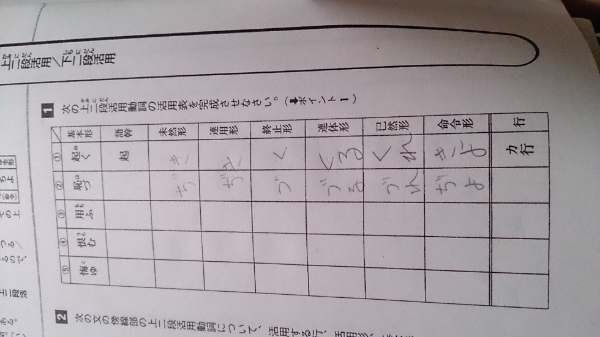 上二段活用／下二段活用
1 次の上二段活用動詞の活用表を完成させなさい。(➡ポイント1)
基本形 語幹 未然形 連用形 終止形 連体形 已然形 命令形 行
① 起く 起 き き く くる くれ きよ カ行
② 恥づ ぢ ぢ づ づる づれ ぢよ
③ 用ふ
④ 恨む
⑤ 悔ゆ
2 次の文の傍線部の上二段活用動詞について、活用する行、活用形、
ちよ
の上
つる／
るので、
上二段活
ある。